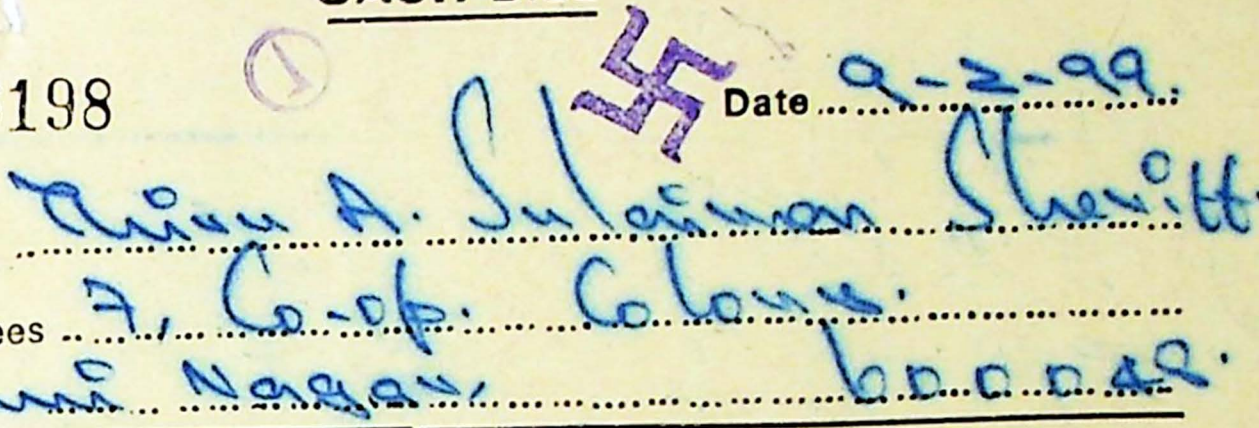 198
Date 9-2-99.
Thiru A. Sulaiman Sheriff
7, Co-op. Colony.
Nagar, 600042.